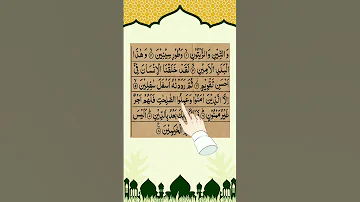 وَالتِّيْنِ وَالزَّيْتُوْنِ ۙ وَطُوْرِ سِيْنِيْنَ ۙ وَهٰذَا
الْبَلَدِ الْاَمِيْنِ ۙ لَقَدْ خَلَقْنَا الْاِنْسَانَ فِيْۤ
اَحْسَنِ تَقْوِيْمٍ ۙ ثُمَّ رَدَدْنٰهُ اَسْفَلَ سٰفِلِيْنَ ۙ
اِلَّا الَّذِيْنَ اٰمَنُوْا وَعَمِلُوا الصّٰلِحٰتِ فَلَهُمْ اَجْرٌ
غَيْرُ مَمْنُوْنٍ ۙ بَعْدُ بِالدِّيْنِ ۙ اَلَيْسَ
الْحٰكِمِيْنَ